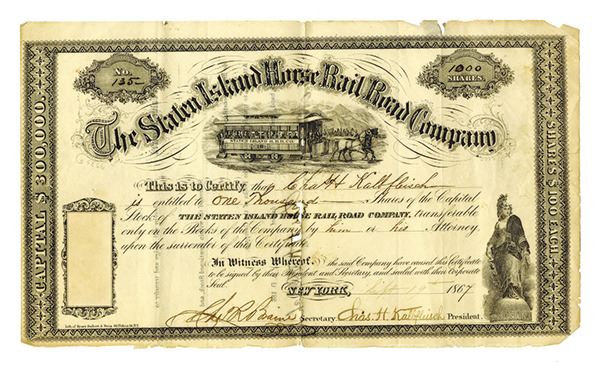 No.
135
1000
SHARES.
The Staten Island Horse Rail Road Company
STATEN ISLAND H.R.R.CO.
This is to Certify, that Chas H Kalbfleisch
is entitled to One Thousand Shares of the Capital
Stock of THE STATEN ISLAND HORSE RAIL ROAD COMPANY, transferable
only on the Books of the Company by him or his Attorney
upon the surrender of this Certificate.
In Witness Whereof, the said Company have caused this Certificate
to be signed by their President and Secretary, and sealed with their Corporate
Seal.
NEW YORK, Sept 19th 1867
Secretary. Chas. H. Kalbfleisch President.
CAPITAL $300,000.
SHARES $100 EACH.